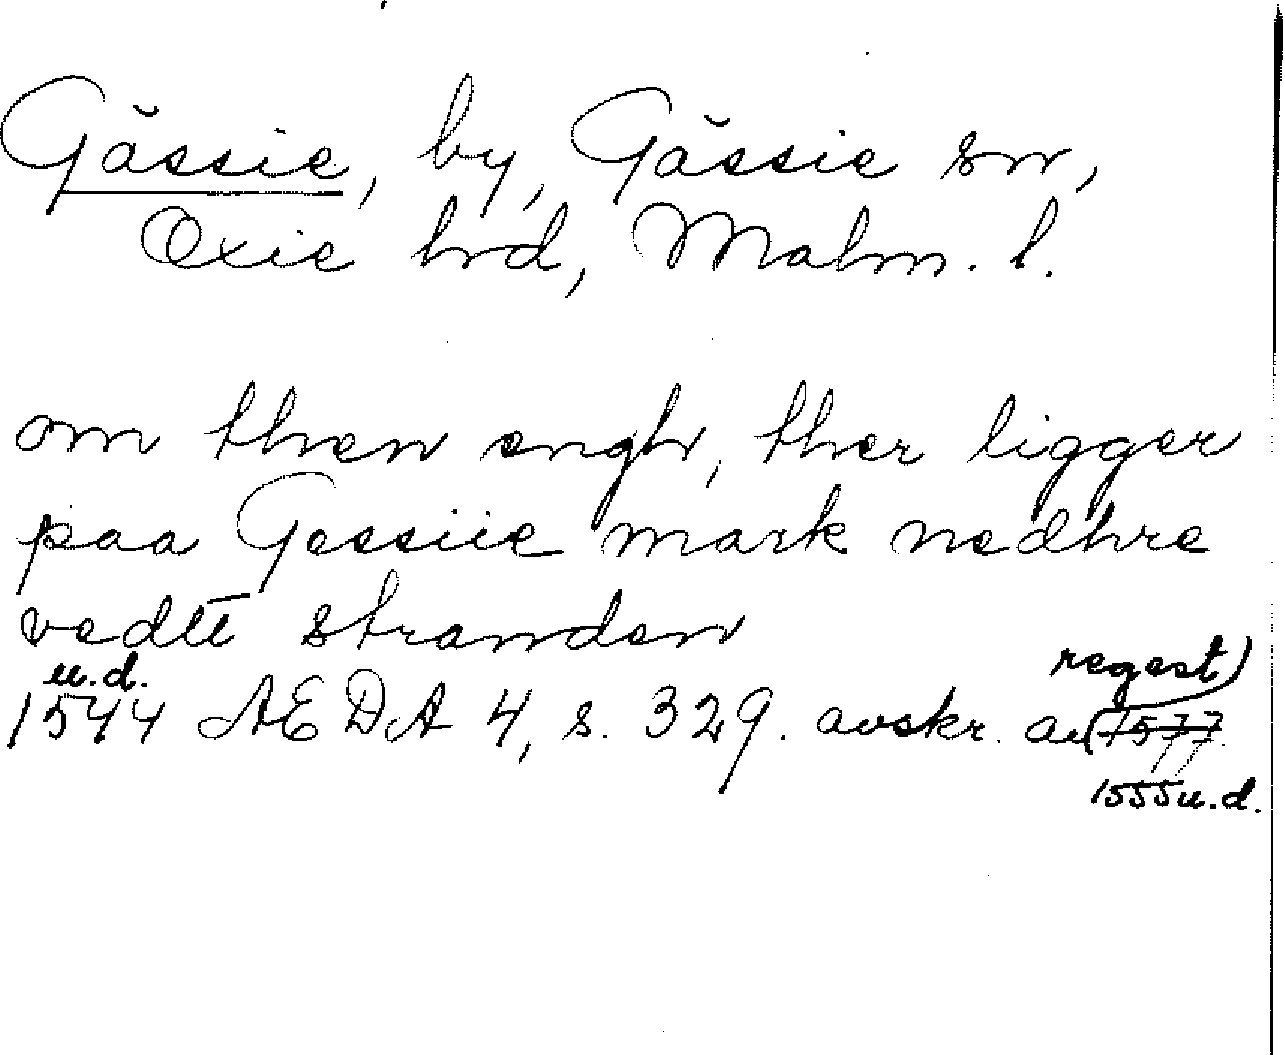 Gässie, by, Gässie sn,
Oxie hrd, Malm. l.
om then engh, ther ligger
paa Gessiie mark nedhre
vedtt stranden
u.d. regest)
1544 AEDA 4, s. 329. avskr. av (1577
1555 u.d.